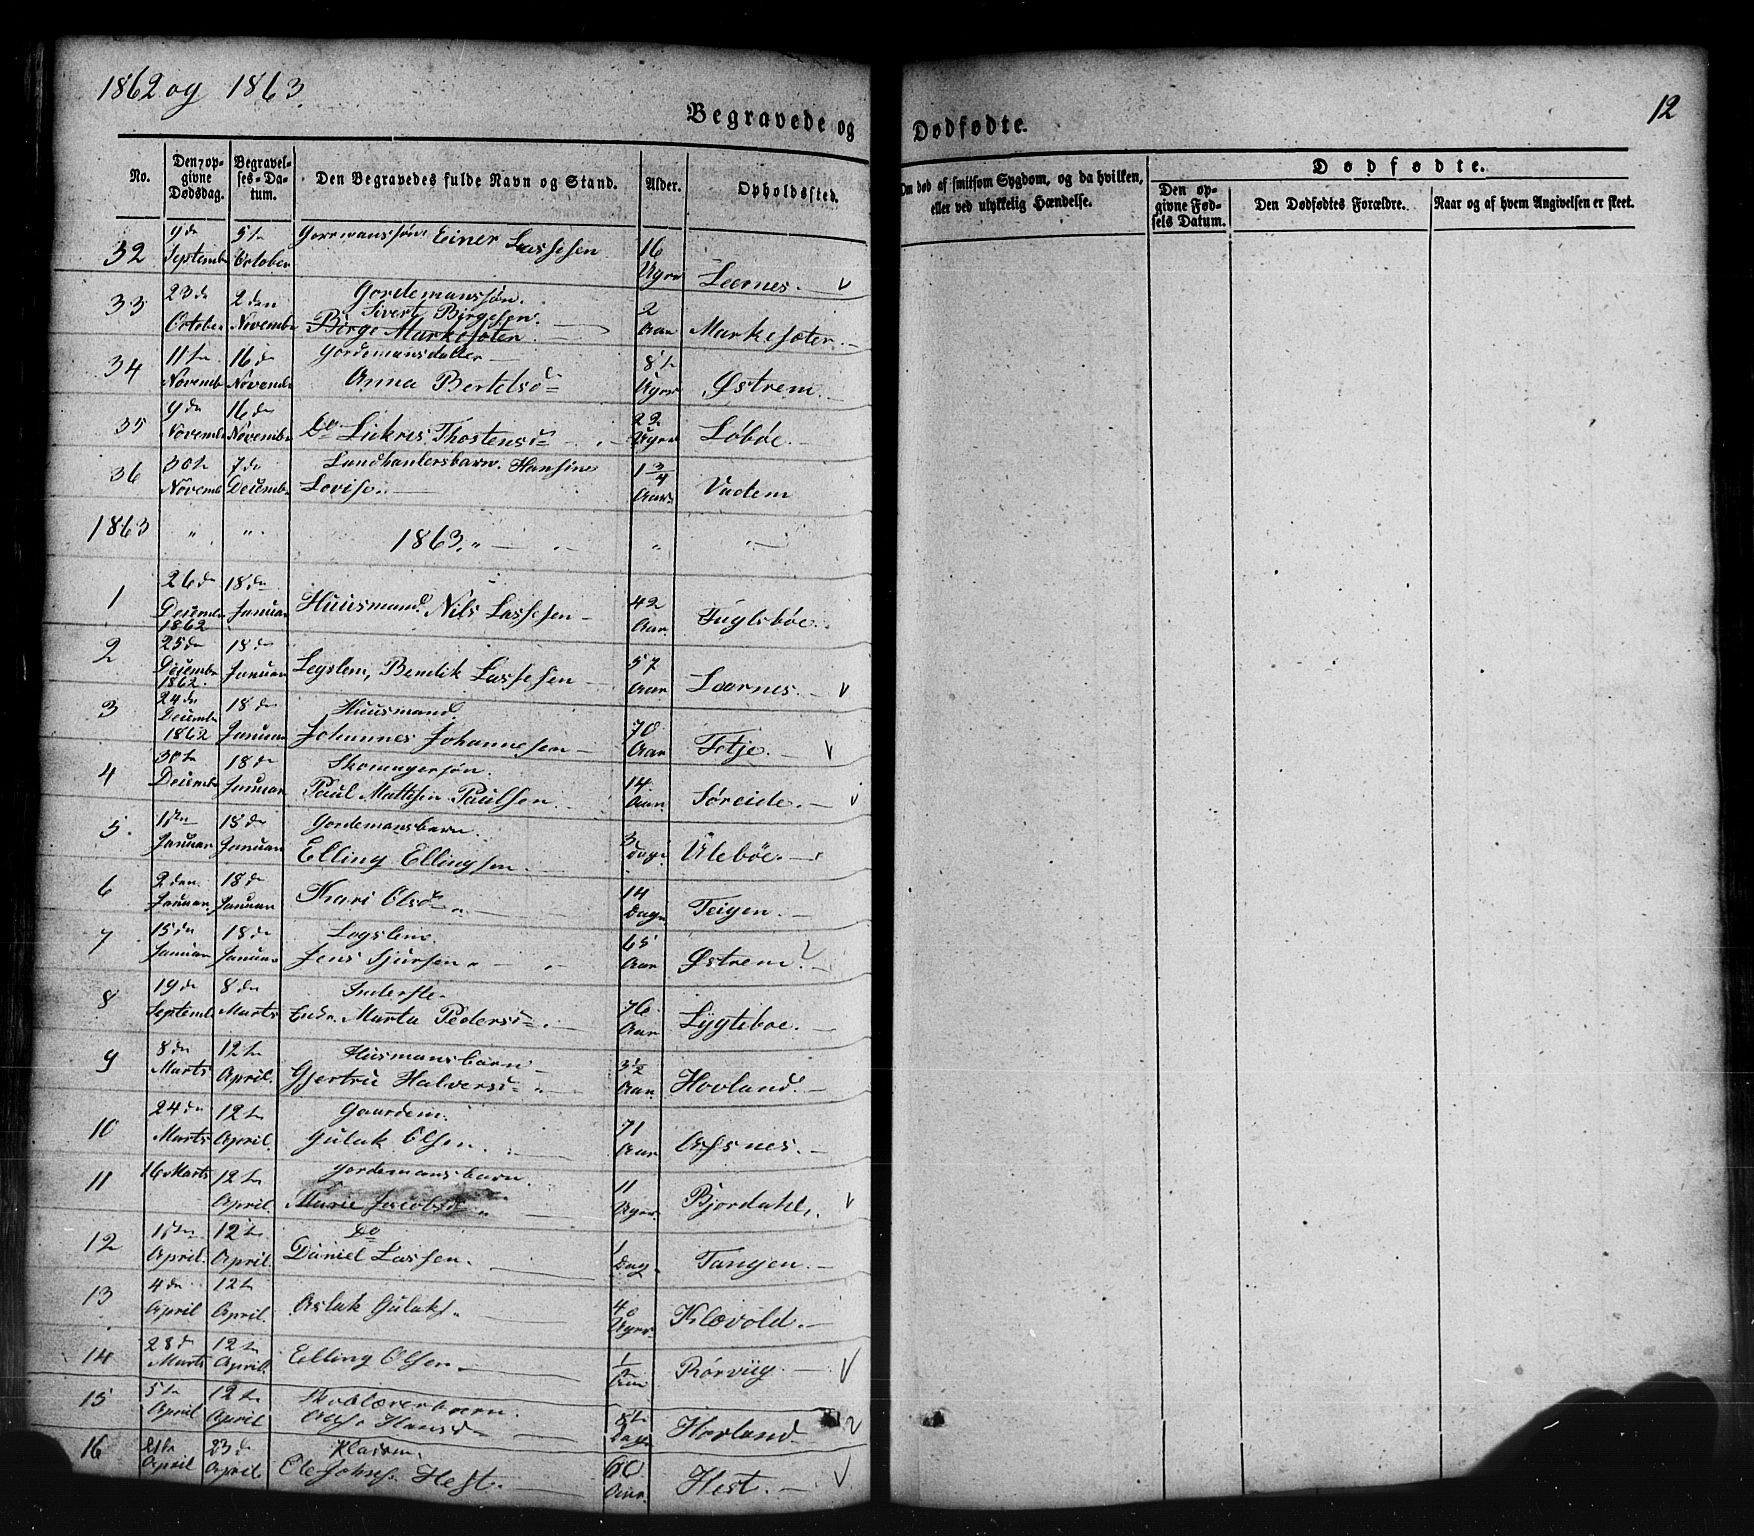 1862 og 1863.
12
Begravede og Dødfødte.
No.
Den opgivne Dødsdag.
Begravelses-Datum.
Den Begravedes fulde Navn og Stand.
Alder.
Opholdssted.
Om død af smitsom Sygdom, og da hvilken, eller ved ulykkelig Hændelse.
Dødfødte.
Den opgivne Fødsels Datum.
Den Dødfødtes Forældre.
Naar og af hvem Angivelsen er skeet.
32 9de Septemb 5te October Einer Lassesen 16 Uger Leernes. v
33 23de October 2den Novembr Gordemanssøn. Sivert Birgesen. Birge Markesøten 2 Aar Markesøter.
34 11te Novemb 16de Novemb Gordemansdatter Anna Bertelsd 8te Uger Østrem.
35 9de Novemb 16de Novemb Do Thostensd 22 Uger Løbøe.
36 30te Novemb 7de Decemb Landhanlersbarn. Hansine Lovise. 1 3/4 Aar Vadem
1863 " " 1863. " "
1 26de Decemb 1862 18de Januar Huusmand Nils Lassesen 42 Aar Fuglsbøe.
2 25de Decemb 1862. 18de Januar Legslem, Bendik Lassesen 57 Aar Leernes. v
3 24de Decemb 1862 18de Januar Huusmand. Johannes Johannesen 70 Aar Totje. v
4 30te Decemb 18de Januar Skomagersøn. Paul Mattesen Paulsen 14 Aar Søreide. v
5. 1ste Januar 18de Januar Gordemansbarn. Elling Ellingsen. 3 Dage Ulebøe.
6 2den Januar 18de Januar Kari Olsd 14 Dage Teigen.
7 15de Januar 18de Januar Logslem. Jens Sjursen 65 Aar Østrem. v
8 19de Septemb 8de Marts Inderste Enke. Marta Pedersd 76 Aar Lygtebøe.
9 8de Marts 12te April. Husmansbarn Gjertru Halversd 3 1/2 Aar Hovland.
10 24de Marts 12te April. Gaardem. Gulak Olsen. 71 Aar Assnes.
11 16 Marts 12te April. Gordemansbarn. Marie Jacobsd 11 Uger. Bjordahl. v
12 1ste April. 12te April. Do Daniel Lassen. 1 Dag. Tangen.
13 4de April 12te April. Aslak Gulaks. 40 Uger. Klævold.
14 28de Marts 12te April. Elling Olsen. 1/2 Aar Rørviig. v
15 5te April 12te April Skolelærerbarn. Hansd 8te Dage Hovland v
16 21de April 23de April Ole Johns. Hest. 60 Aar. Hest. v